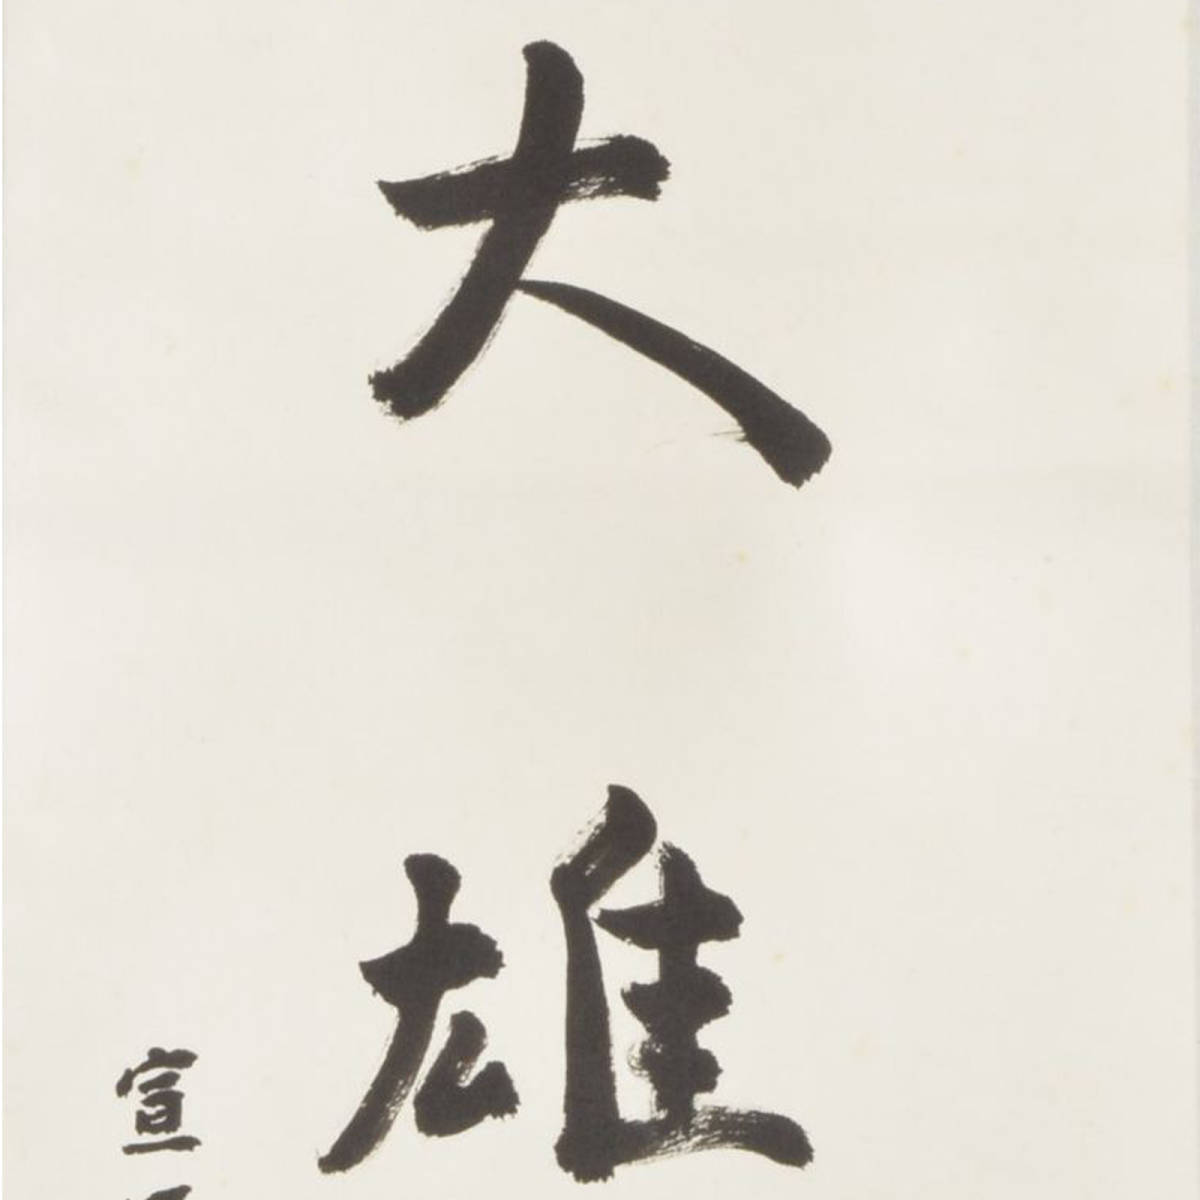 大雄
宣